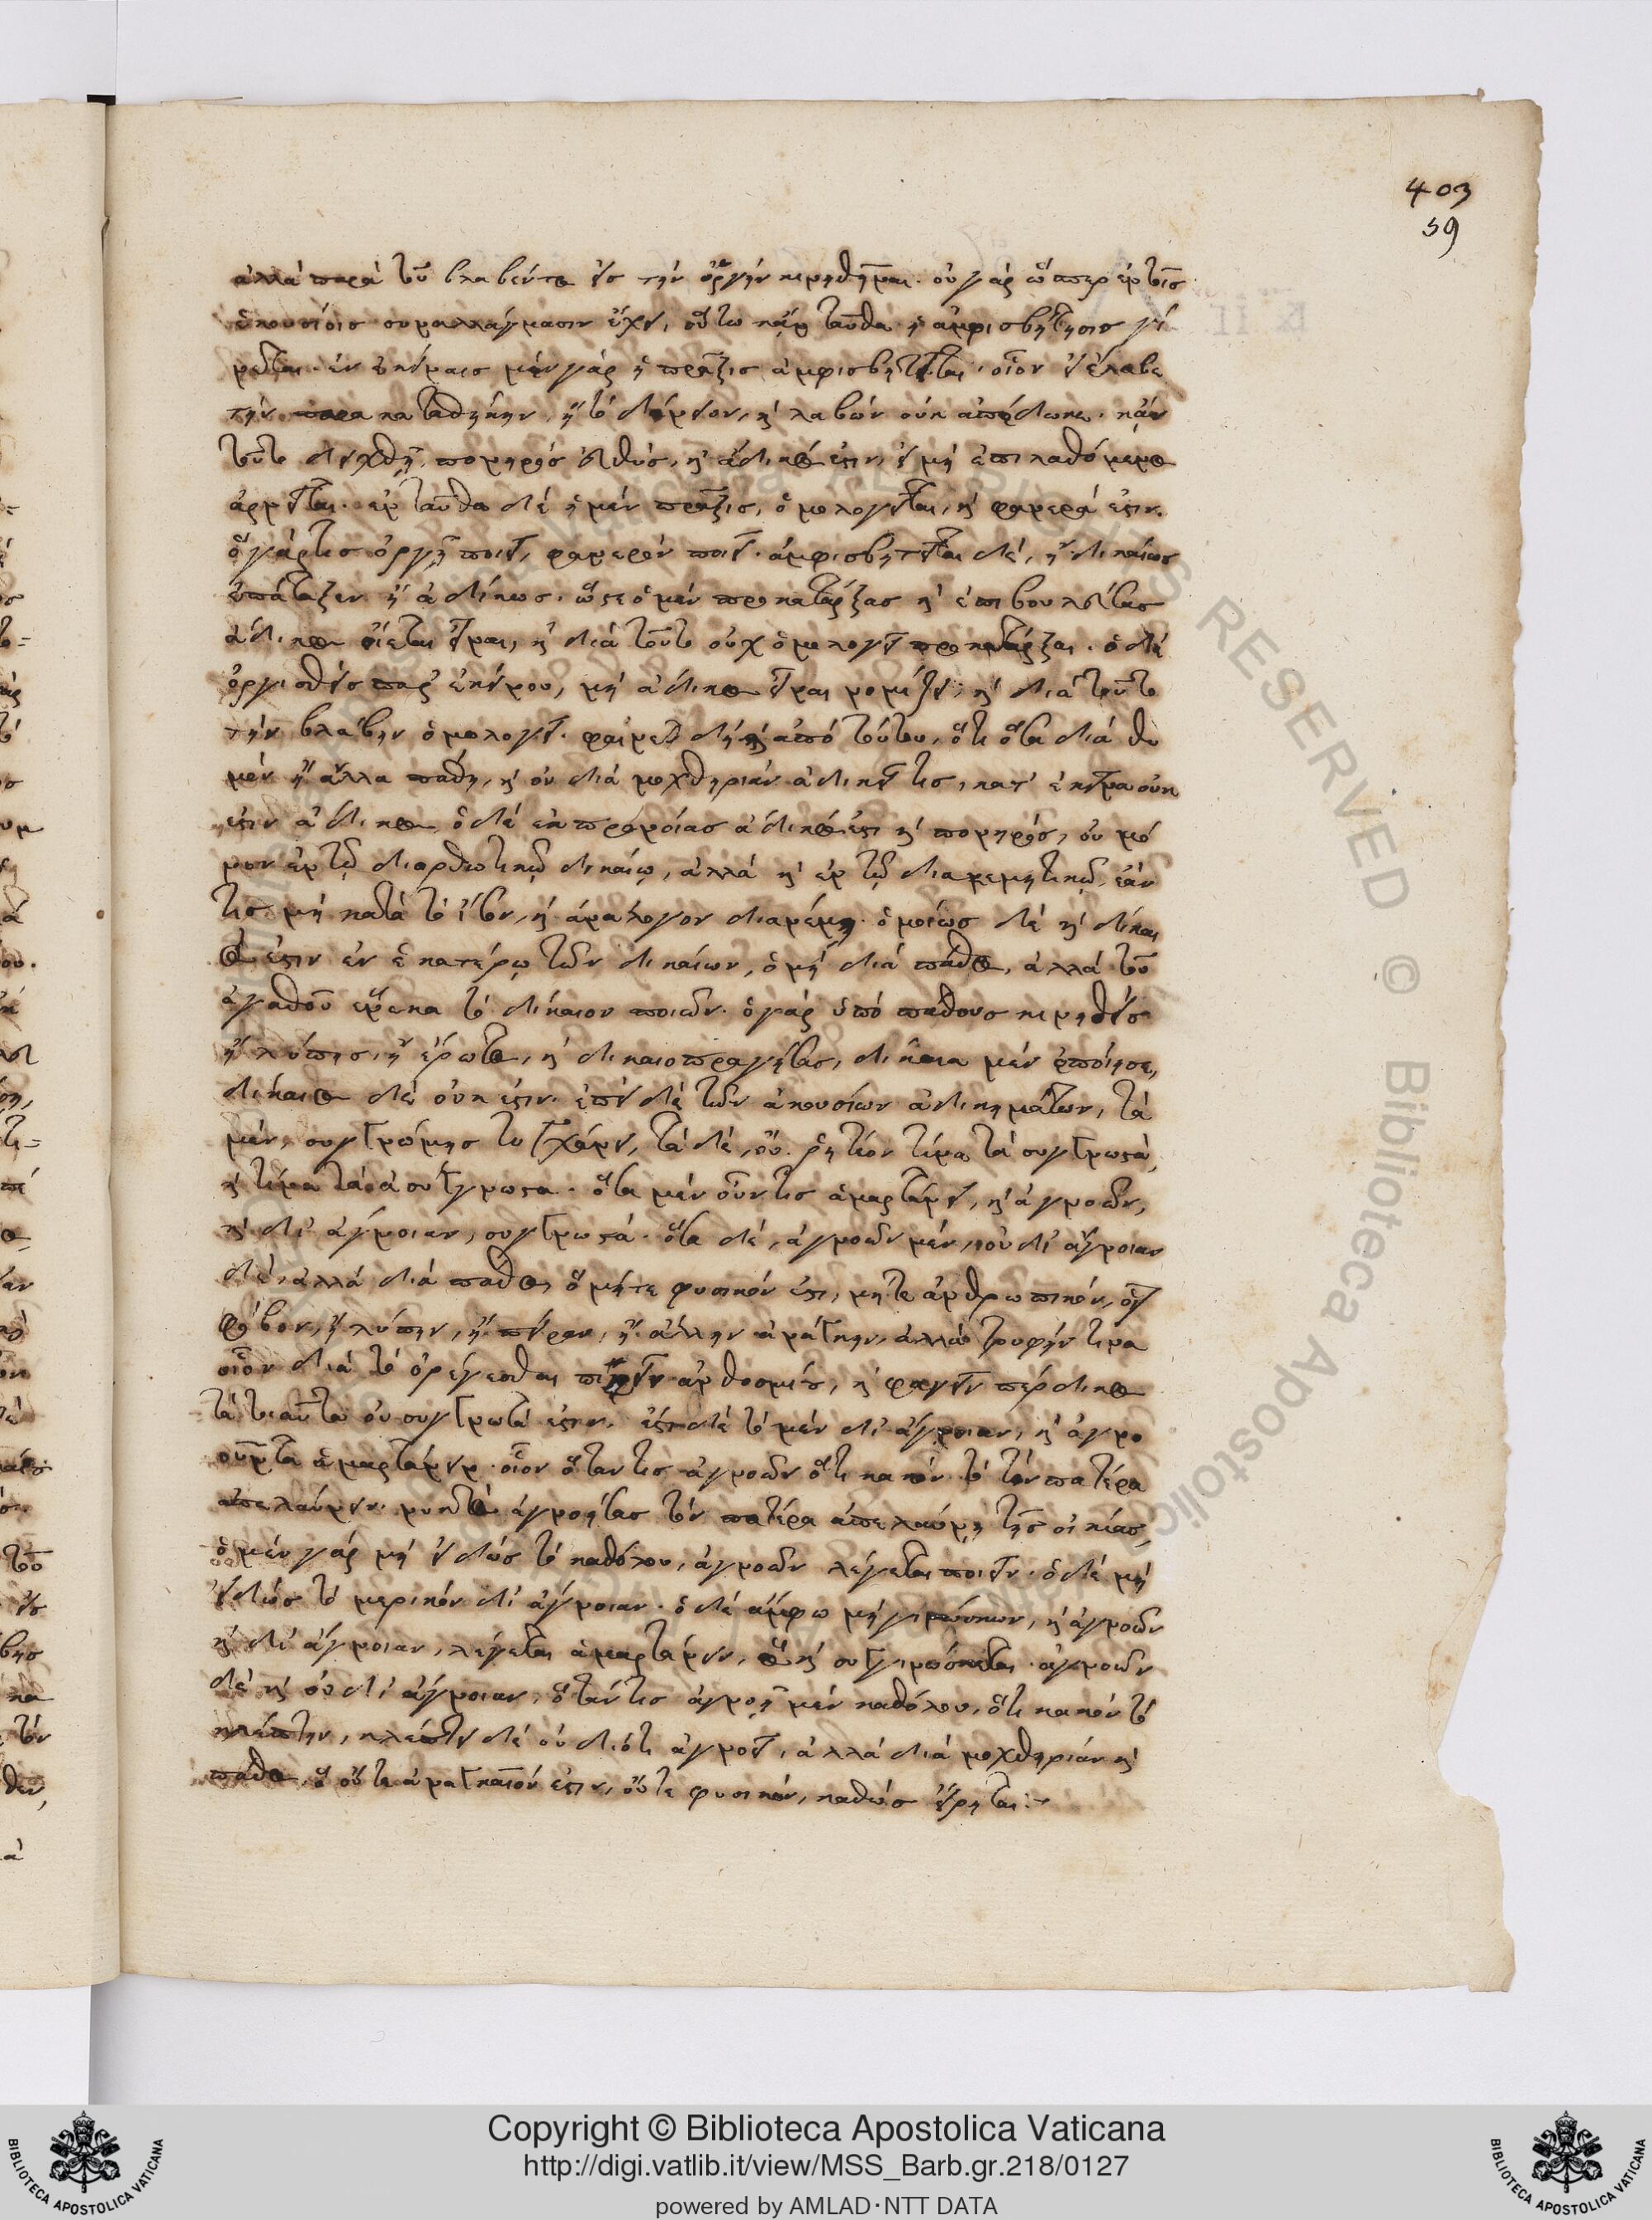 403
59
ἀλλὰ παρὰ τοῦ βλαβέντος εἰς τὴν ὀργὴν κινηθῆναι. οὐ γὰρ ὥσπερ ἐν τοῖς
ἑκουσίοις συναλλάγμασιν ἔχει, οὕτω κἀνταῦθα ἡ ἀμφισβήτησις γί
νεται. ἐν ἐκείναις μὲν γὰρ ἡ πρᾶξις ἀμφισβητεῖται. οἷον εἰ ἔλαβε
τὴν παρακαταθήκην, ἢ τὸ δάνειον, ἢ λαβὼν οὐκ ἀπέδωκε. κἂν
τοῦτο δειχθῇ, πονηρὸς εὐθὺς, καὶ ἄδικός ἐστιν, εἰ μὴ ἐπιλαθόμενος
ἀρνεῖται. ἐνταῦθα δὲ ἡ μὲν πρᾶξις, ὁμολογεῖται, καὶ φανερά ἐστιν.
ὃ γάρ τις ὀργῇ ποιεῖ, φανερὸν ποιεῖ. ἀμφισβητεῖται δὲ, εἰ δικαίως
ἐπάταξεν ἢ ἀδίκως. ὥστε ὁ μὲν προκατάρξας καὶ ἐπιβουλεύσας
ἄδικος οἴεται εἶναι, καὶ διὰ τοῦτο οὐχ ὁμολογεῖ προκατάρξαι. ὁ δὲ
ὀργισθεὶς παρ' ἐκείνου, μὴ ἄδικος εἶναι νομίζει, καὶ διὰ τοῦτο
τὴν βλάβην ὁμολογεῖ. φαίνεται δὴ καὶ ἀπὸ τούτου, ὅτι ὅτε διὰ θυ
μὸν ἢ ἄλλα πάθη, καὶ οὐ διὰ μοχθηρίαν ἀδικεῖ τις, κατ' ἐκεῖνα οὐκ
ἔστιν ἄδικος ὁ δὲ ἐκ προνοίας ἄδικός ἐστι καὶ πονηρός, οὐ μό
νον ἐν τῷ διορθωτικῷ δικαίῳ, ἀλλὰ καὶ ἐν τῷ διανεμητικῷ, ἐάν
τις μὴ κατὰ τὸ ἴσον, ἢ ἀνάλογον διανέμῃ. ὁμοίως δὲ καὶ δίκαι
ός ἐστιν ἐν ἑκατέρῳ τῶν δικαίων, ὁ μὴ διὰ πάθος, ἀλλὰ τοῦ
ἀγαθοῦ ἕνεκα τὸ δίκαιον ποιῶν. ὁ γὰρ ὑπὸ πάθους κινηθεὶς
ἢ λύπης, ἢ ἔρωτος, καὶ δικαιοπραγήσας, δίκαια μὲν ἐποίησε,
δίκαιος δὲ οὐκ ἔστιν. ἐπεὶ δὲ τῶν ἀκουσίων ἀδικημάτων, τὰ
μὲν, συγγνώμης τυγχάνει, τὰ δὲ, οὔ. ῥητέον τίνα τὰ συγγνωστὰ,
καὶ τίνα τὰ ἀσύγγνωστα. ὅτε μὲν οὖν τις ἁμαρτάνει, καὶ ἀγνοῶν,
καὶ δι' ἄγνοιαν, συγγνωστά. ὅτε δὲ, ἀγνοῶν μὲν, οὐ δι' ἄγνοιαν
δὲ, ἀλλὰ διὰ πάθος ὃ μήτε φυσικόν ἐστι, μήτε ἀνθρωπικὸν, οἷον
φόβον, ἢ λύπην, ἢ πεῖναν, ἢ ἄλλην ἀνάγκην, ἀλλὰ τρυφήν τινα
οἷον διὰ τὸ ὀρέγεσθαι πιεῖν ἀνθοσμίου, καὶ φαγεῖν πέρδικος
τὰ τοιαῦτα οὐ συγγνωστά ἐστιν. ἔστι δὲ τὸ μὲν δι' ἄγνοιαν, καὶ ἀγνο
οῦντα ἁμαρτάνειν. οἷον ὅταν τις ἀγνοῶν ὅτι κακὸν τὸ τὸν πατέρα
ἀπελαύνειν. νυκτὸς ἀγνοήσας τὸν πατέρα ἀπελαύνῃ τῆς οἰκίας,
ὁ μὲν γὰρ μὴ εἰδὼς τὸ καθόλου, ἀγνοῶν λέγεται ποιεῖν. ὁ δὲ μὴ
εἰδὼς τὸ μερικὸν δι' ἄγνοιαν. ὁ δὲ ἄμφω μὴ γινώσκων, καὶ ἀγνοῶν
καὶ δι' ἄγνοιαν, λέγεται ἁμαρτάνειν, ὃς καὶ συγγινώσκεται. ἀγνοῶν
δὲ καὶ οὐ δι' ἄγνοιαν, ὅταν τις ἀγνοῇ μὲν καθόλου, ὅτι κακὸν τὸ
κλέπτειν, κλέπτει δὲ οὐ διότι ἀγνοεῖ, ἀλλὰ διὰ μοχθηρίαν καὶ
πάθος, ὃ οὔτε ἀναγκαῖόν ἐστιν, οὔτε φυσικὸν, καθὼς εἴρηται:~
Copyright © Biblioteca Apostolica Vaticana
http://digi.vatlib.it/view/MSS_Barb.gr.218/0127
powered by AMLAD·NTT DATA
BIBLIOTECA APOSTOLICA VATICANA
BIBLIOTECA APOSTOLICA VATICANA